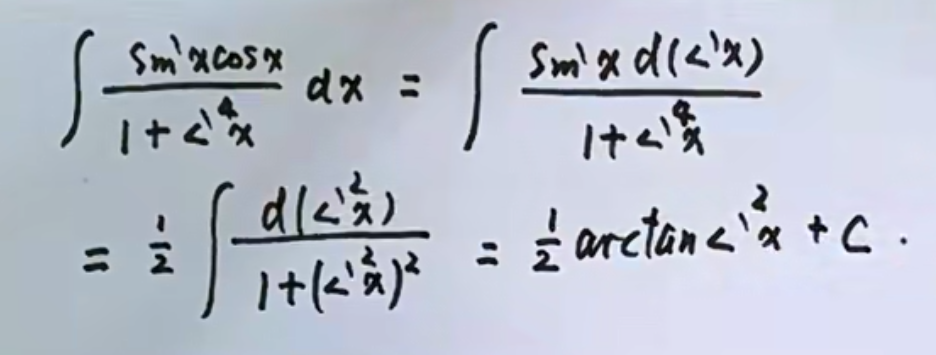 ∫ (sin x cos x)/(1 + sin⁴x) dx = ∫ (sin x d(sin x))/(1 + sin⁴x)
= 1/2 ∫ d(sin²x)/(1 + (sin²x)²) = 1/2 arctan sin²x + C .